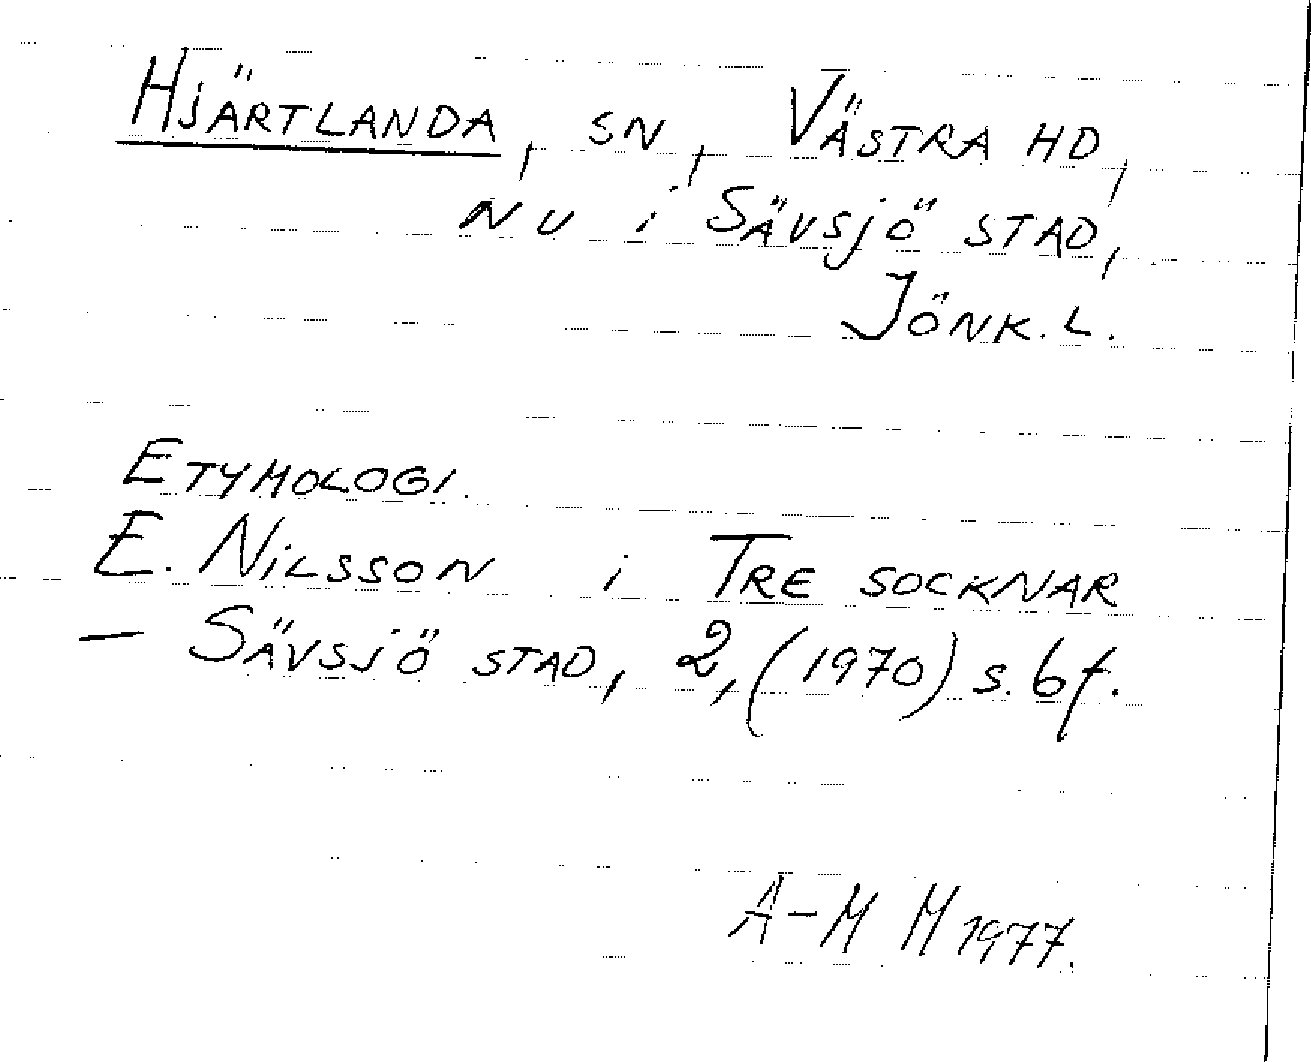 HJÄRTLANDA, SN, VÄSTRA HD,
NU i SÄVSJÖ STAD,
JÖNK. L.
ETYMOLOGI.
E. NILSSON i TRE SOCKNAR
— SÄVSJÖ STAD, 2, (1970) s. 6f.
A-M M 1977.